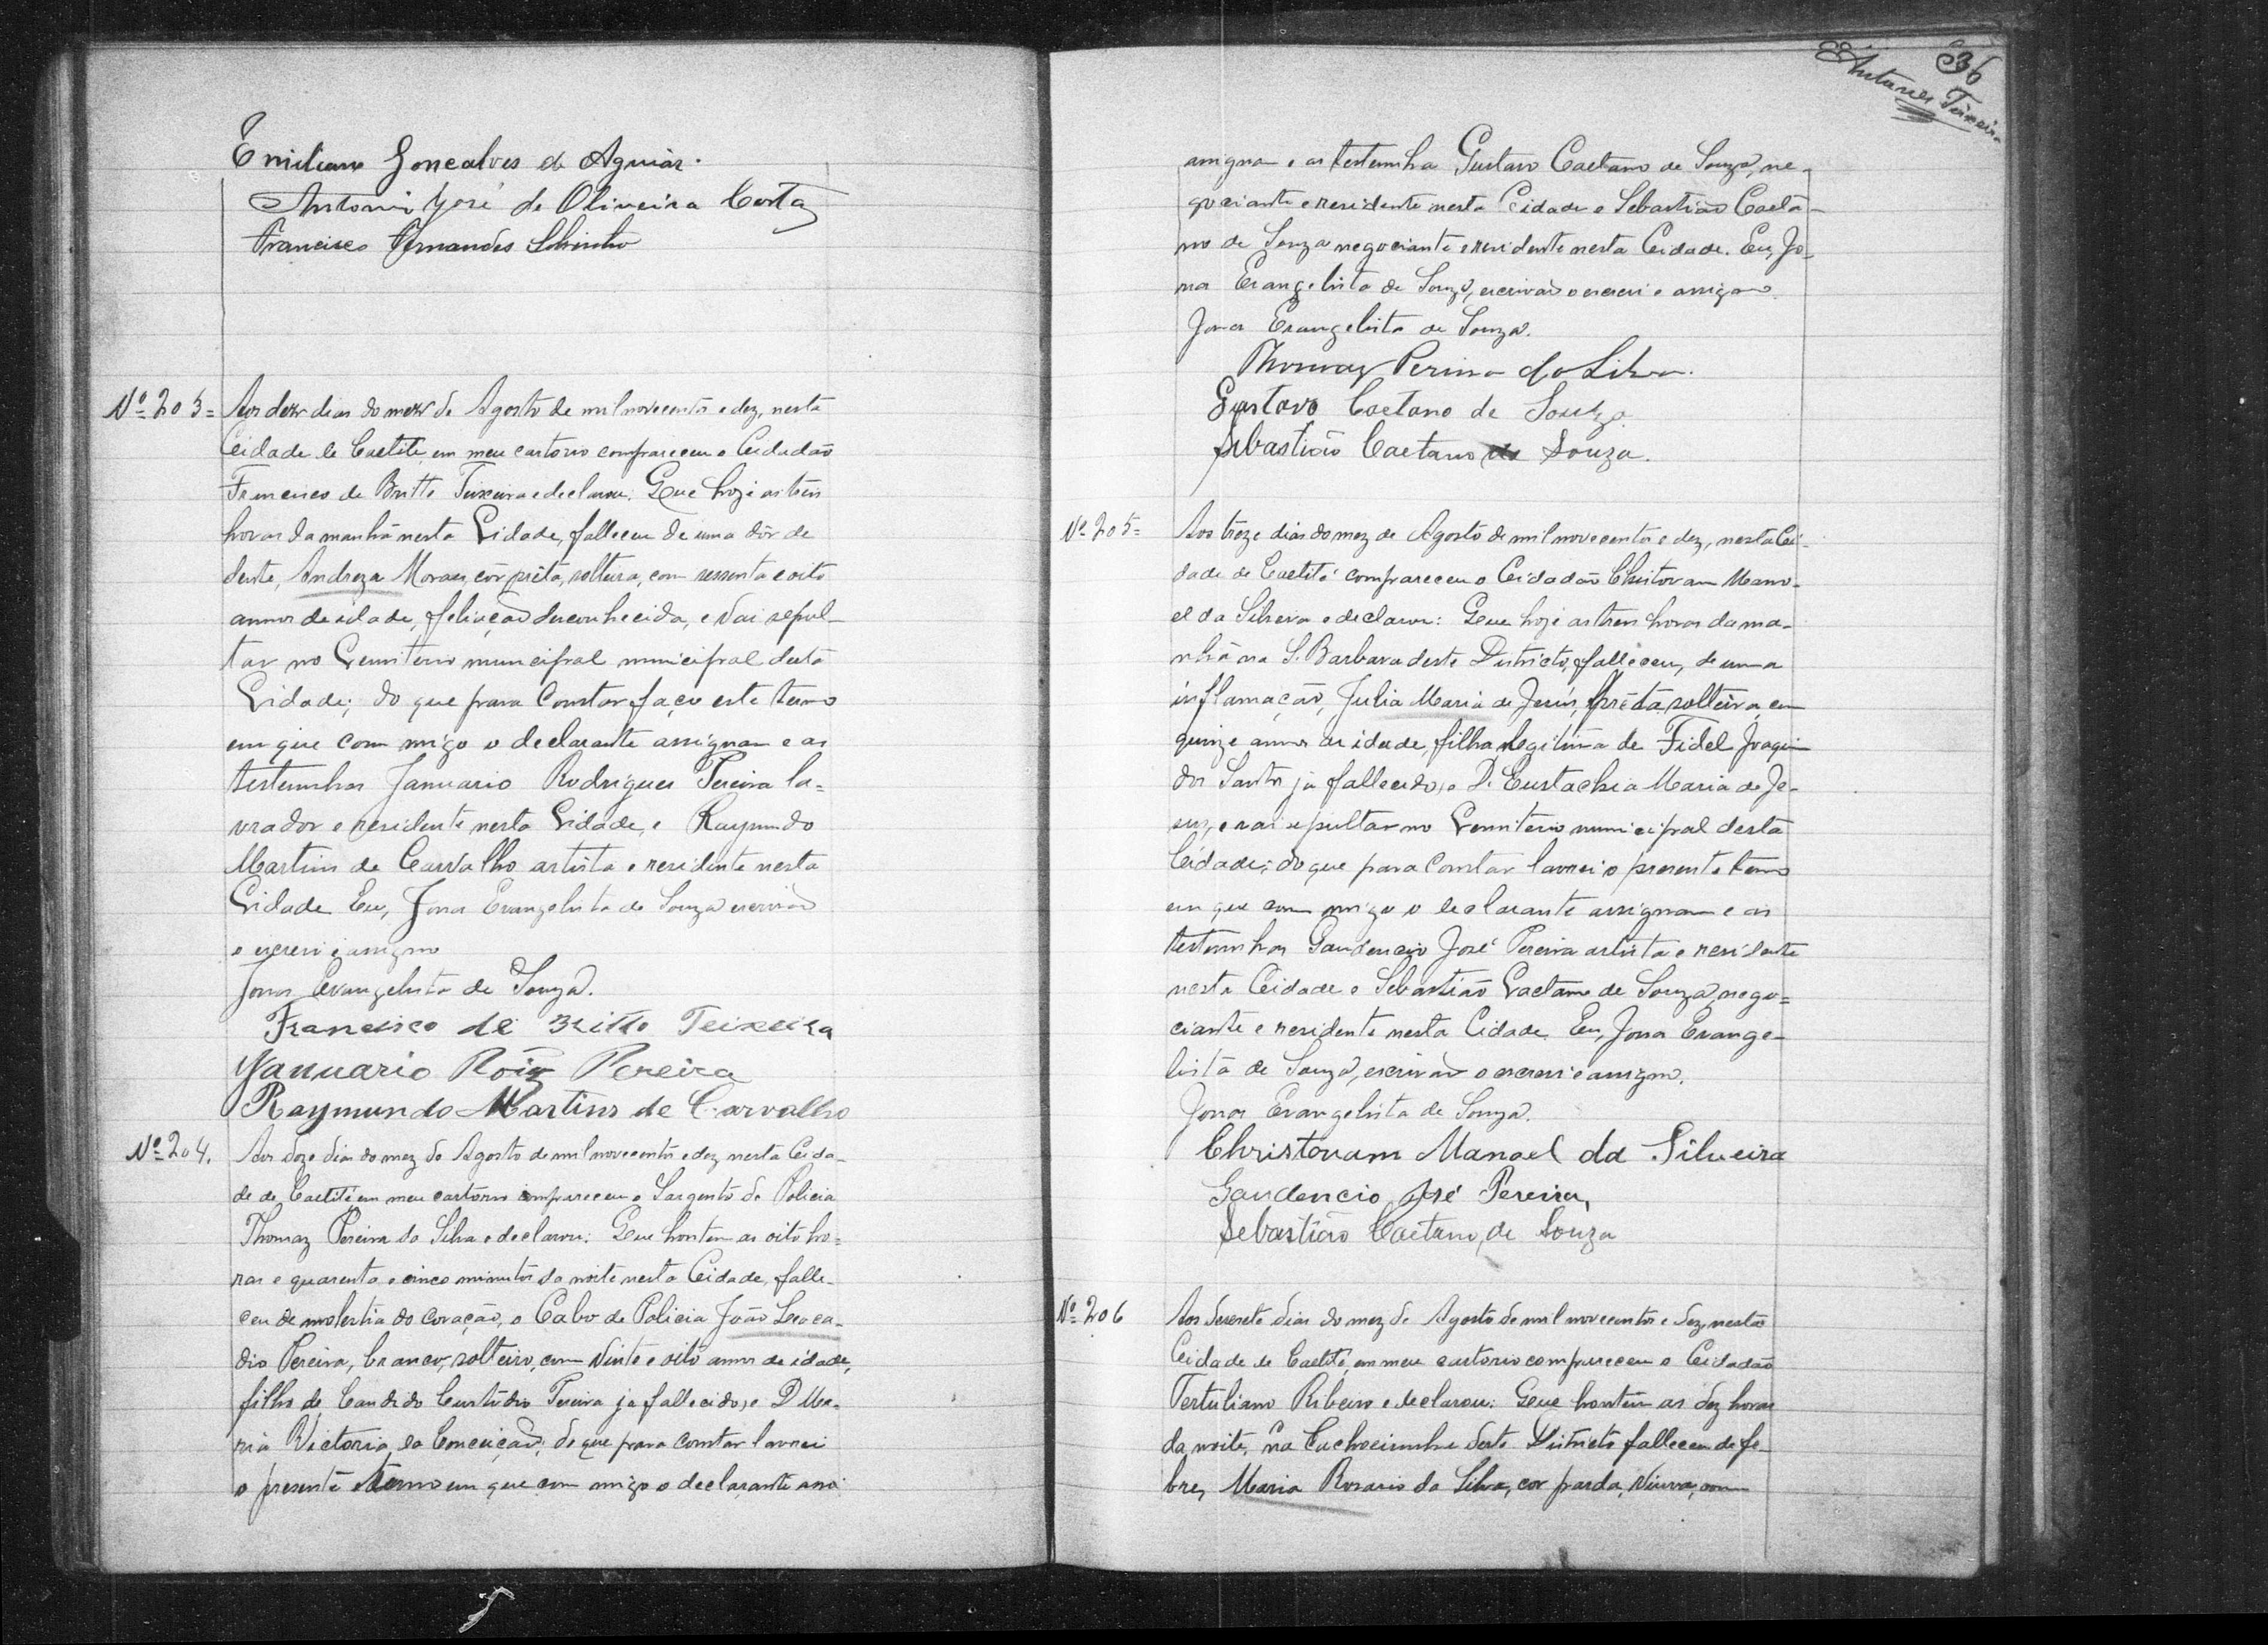 Emiliano Gonçalves de Aguiar.
Antonio José de Oliveira Costa
Francisco Fernandes Sobrinho
Nº 203= Aos dez dias do mez de Agosto de mil novecentos e dez, nesta
Cidade de Caetité em meu cartorio compareceu o Cidadão
Francisco de Britto Teixeira e declarou: Que hoje as tres
horas da manhã nesta Cidade, falleceu de uma dôr de
dente, Andreza Moraes, côr prêta, solteira, com sessenta e oito
annos de idade, feliação desconhecida, e vai sepul-
tar no Cemiterio municipal municipal desta
Cidade; do que para constar faço este termo
em que com migo o declarante assignam e as
testemunhas Januario Rodrigues Pereira la=
vrador e residente nesta Cidade, e Raymundo
Martins de Carvalho artista e residente nesta
Cidade Eu, Jonas Evangelista de Souza escrivão
o escrevi e assigno
Jonas Evangelista de Souza.
Francisco de Britto Teixeira
Januario Roiz Pereira
Raymundo Martins de Carvalho
Nº 204. Aos doze dias do mez de Agosto de mil novecentos e dez nesta Cida-
de de Caetité em meu cartorio compareceu o Sargento de Policia
Thomaz Pereira da Silva e declarou: Que hontem as oito ho=
ras e quarenta e cinco minutos da noite nesta Cidade, falle-
ceu de molestia do coração, o Cabo de Policia João Leoca-
dio Pereira, branco, solteiro, com vinte e oito annos de idade,
filho de Candido Custodio Pereira ja fallecido, e D. Ma-
ria Victoria da Conceição; do que para constar lavrei
o presente termo em que com migo o declarante assi
36
Antunes Teixeira
assignam e as testemunha Gustavo Caetano de Souza, ne-
gociante e residente nesta Cidade e Sebastião Caeta-
no de Souza negociante e residente nesta Cidade. Eu, Jo-
nas Evangelista de Souza, escrivão o escrevi e assigno.
Jonas Evangelista de Souza.
Thomaz Perira da Silva.
Gustavo Caetano de Souza.
Sebastião Caetano de Souza.
Nº 205= Aos treze dias do mez de Agosto de mil novecentos e dez, nesta Ci-
dade de Caetité compareceu o Cidadão Christovam Mano-
el da Silveira e declarou: Que hoje as tres horas da ma-
nhã na S. Barbara deste Districto, falleceu, de uma
inflamação, Julia Maria de Jesús, prêta, solteira, com
quinze annos de idade, filha legitima de Fidel Joaquim
dos Santos ja fallecido, e D. Eustachia Maria de Je-
sus, e vai sepultar no Cemiterio municipal desta
Cidade; do que para constar lavrei o presente termo
em que com migo o declarante assignam e as
testemunhas Gaudencio José Pereira artista e residente
nesta Cidade e Sebastião Caetano de Souza, nego=
ciante e residente nesta Cidade. Eu, Jonas Evange-
lista de Souza, escrivão o escrevi e assigno.
Jonas Evangelista de Souza.
Christovam Manoel da Silveira
Gaudencio José Pereira,
Sebastião Caetano, de Souza
Nº 206 Aos desesete dias do mez de Agosto de mil novecentos e dez, nesta
Cidade de Caetité, em meu cartorio compareceu o Cidadão
Tertuliano Ribeiro e declarou: Que hontem as dez horas
da noite, na Cachoeirinha deste Districto falleceu de fe-
bre, Maria Rosario da Silva, cor parda, viuva, com